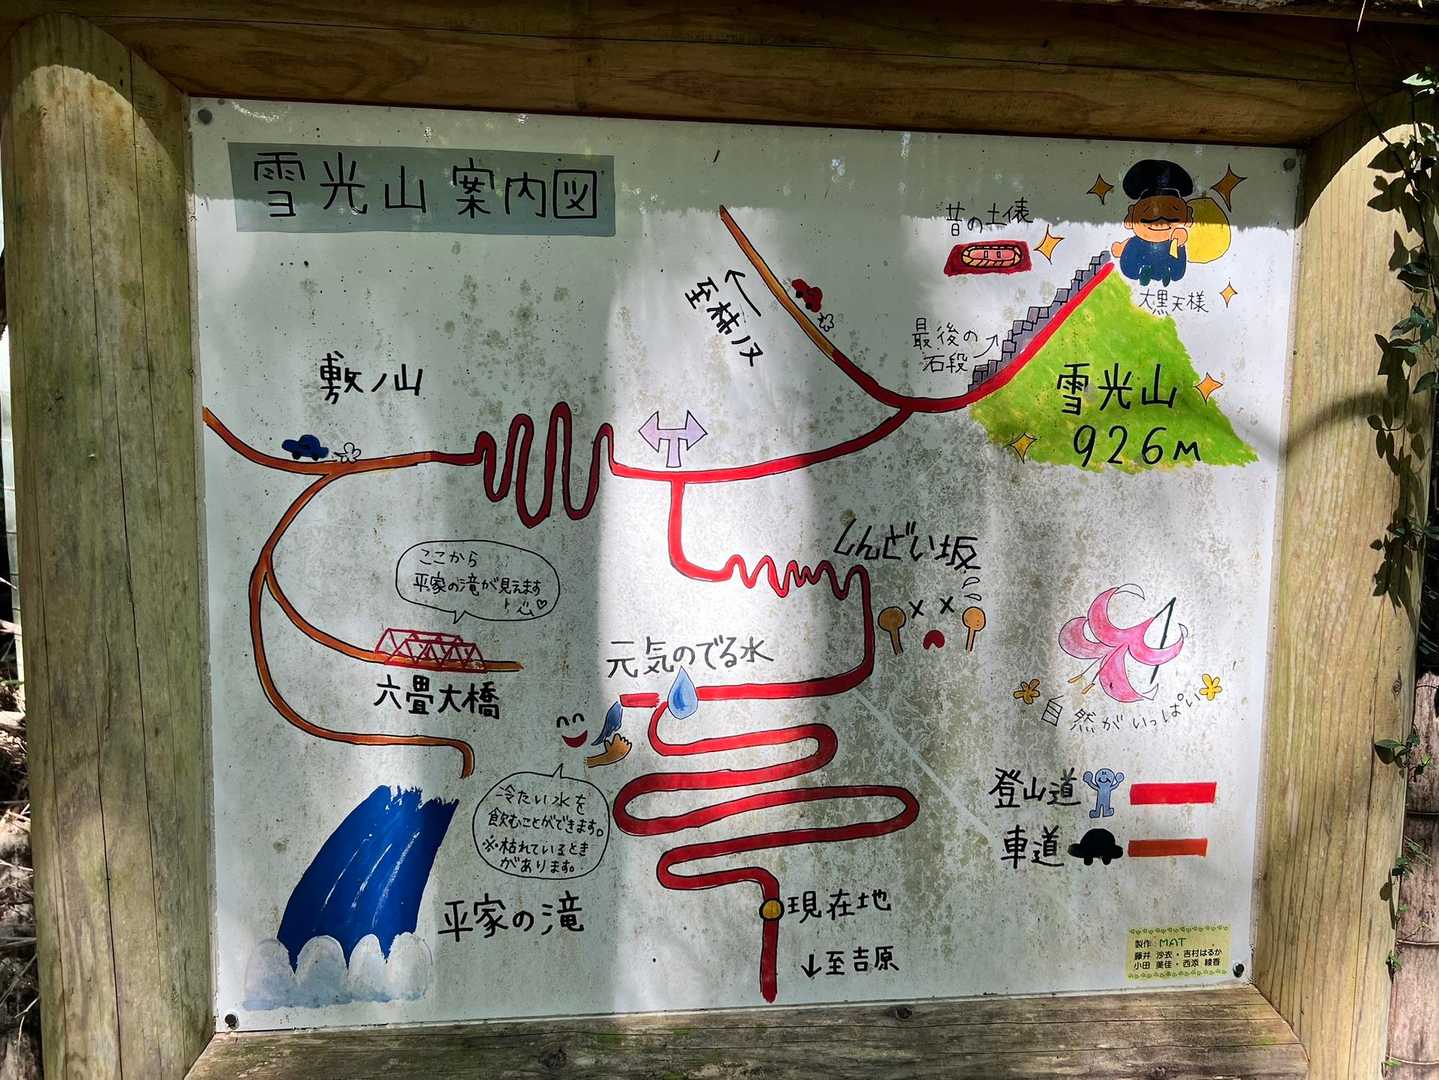 雪光山案内図
昔の土俵
大黒天様
最後の
石段
雪光山
926m
至柿ノ又
敷ノ山
ここから
平家の滝が見えます
六畳大橋
しんどい坂
元気のでる水
冷たい水を
飲むことができます。
※枯れているとき
があります。
自然がいっぱい
登山道
車道
平家の滝
現在地
↓至吉原
製作:MAT
藤井 沙衣・吉村はるか
小田 美佳・西添 綾香